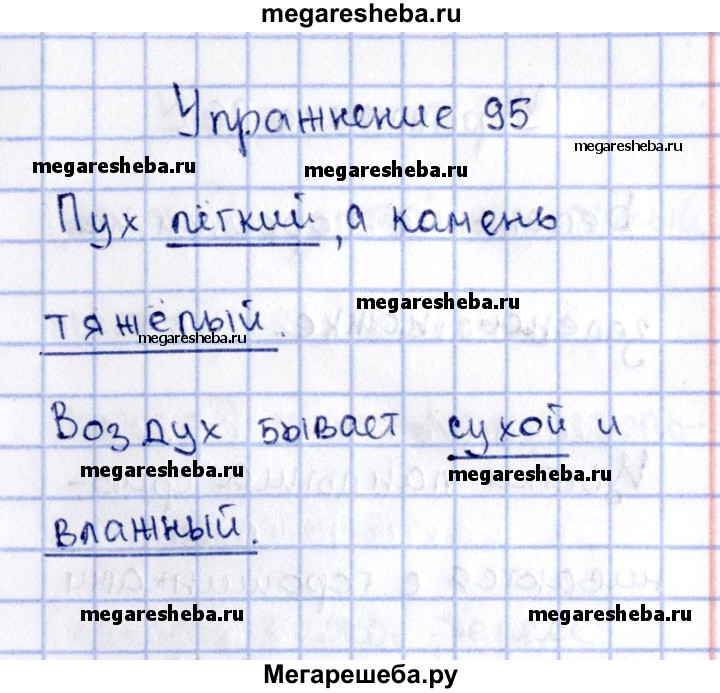 megaresheba.ru
Упражнение 95
megaresheba.ru
megaresheba.ru
megaresheba.ru
Пух лёгкий, а камень
megaresheba.ru
тяжёлый.
megaresheba.ru
Воздух бывает сухой и
megaresheba.ru
megaresheba.ru
влажный.
megaresheba.ru
megaresheba.ru
Мегарешеба.ру